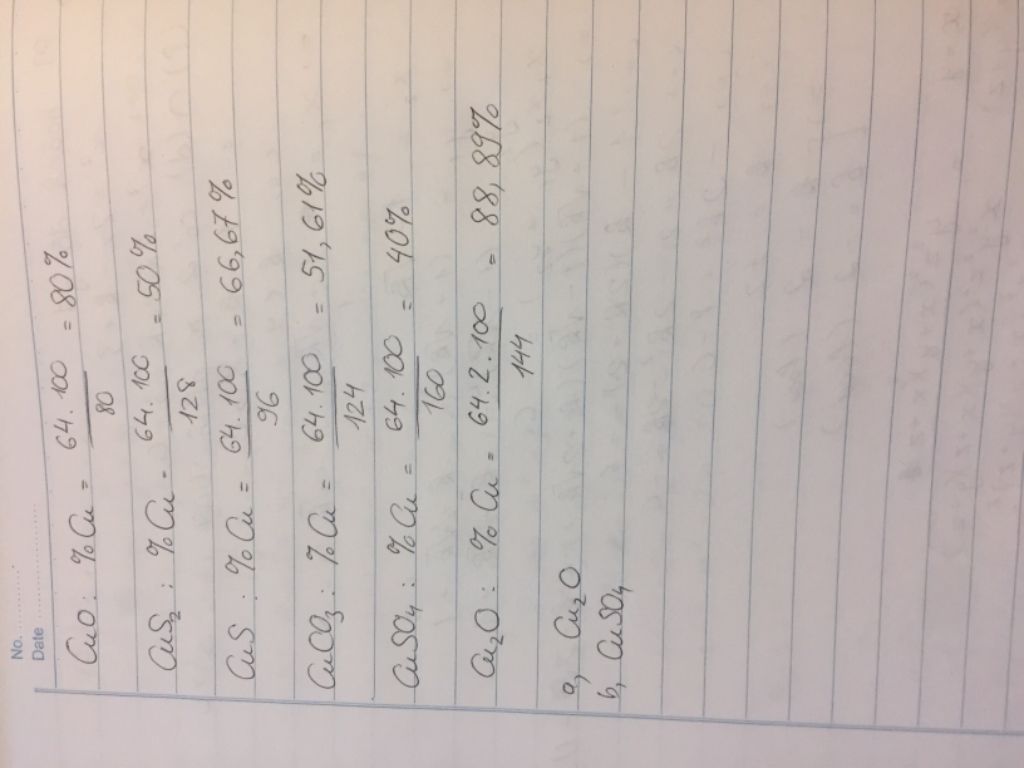 No. ............
Date ............
CuO : % Cu = 64 . 100 / 80 = 80%
CuS₂ : % Cu = 64 . 100 / 128 = 50%
CuS : % Cu = 64 . 100 / 96 = 66,67%
CuCO₃ : % Cu = 64 . 100 / 124 = 51,61%
CuSO₄ : % Cu = 64 . 100 / 160 = 40%
Cu₂O : % Cu = 64 . 2 . 100 / 144 = 88,89%
a, Cu₂O
b, CuSO₄